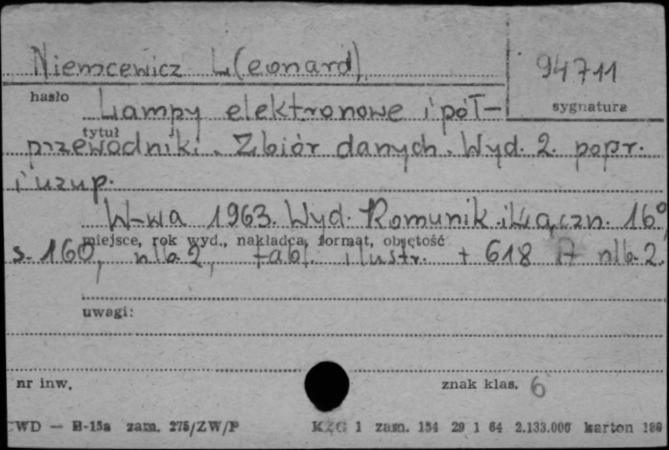 Niemcewicz L(eonard)
94711
hasło
sygnatura
Lampy elektronowe i pół-
tytuł
przewodniki. Zbiór danych. Wyd. 2. popr.
i uzup.
W-wa 1963. Wyd. Komunik. i Łączn. 16°
miejsce, rok wyd., nakładca, format, objętość
s. 160, nlb 2, tabl. ilustr. + 618 nlb 2.
uwagi:
nr inw.
znak klas. 6
CWD — H-15a zam. 275/ZW/P KZG 1 zam. 154 29 1 64 2.133.000 karton